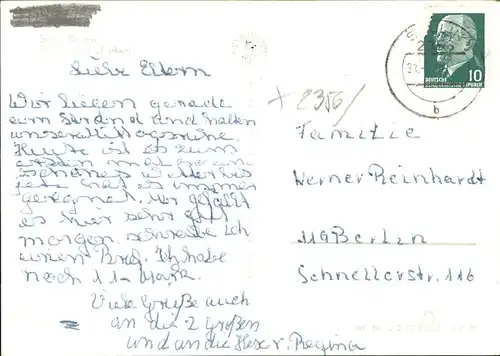 Liebe Eltern
Wir liegen gerade
am Strand und halten
unsere Mittagsruhe.
Heute ist es zum
ersten mal so ein
schönes Wetter bis
jetz hat es immer
geregnet. Mir gefällt
es hier sehr gut
morgen schreibe ich
einen Brief. Ich habe
noch 11 Mark.
Viele Grüße auch
an die 2 Großen
und an die Hexe v. Regina
2356/
Familie
Werner Reinhardt
119 Berlin
Schnellerstr. 116
10
DEUTSCHE
REPUBLIK
b